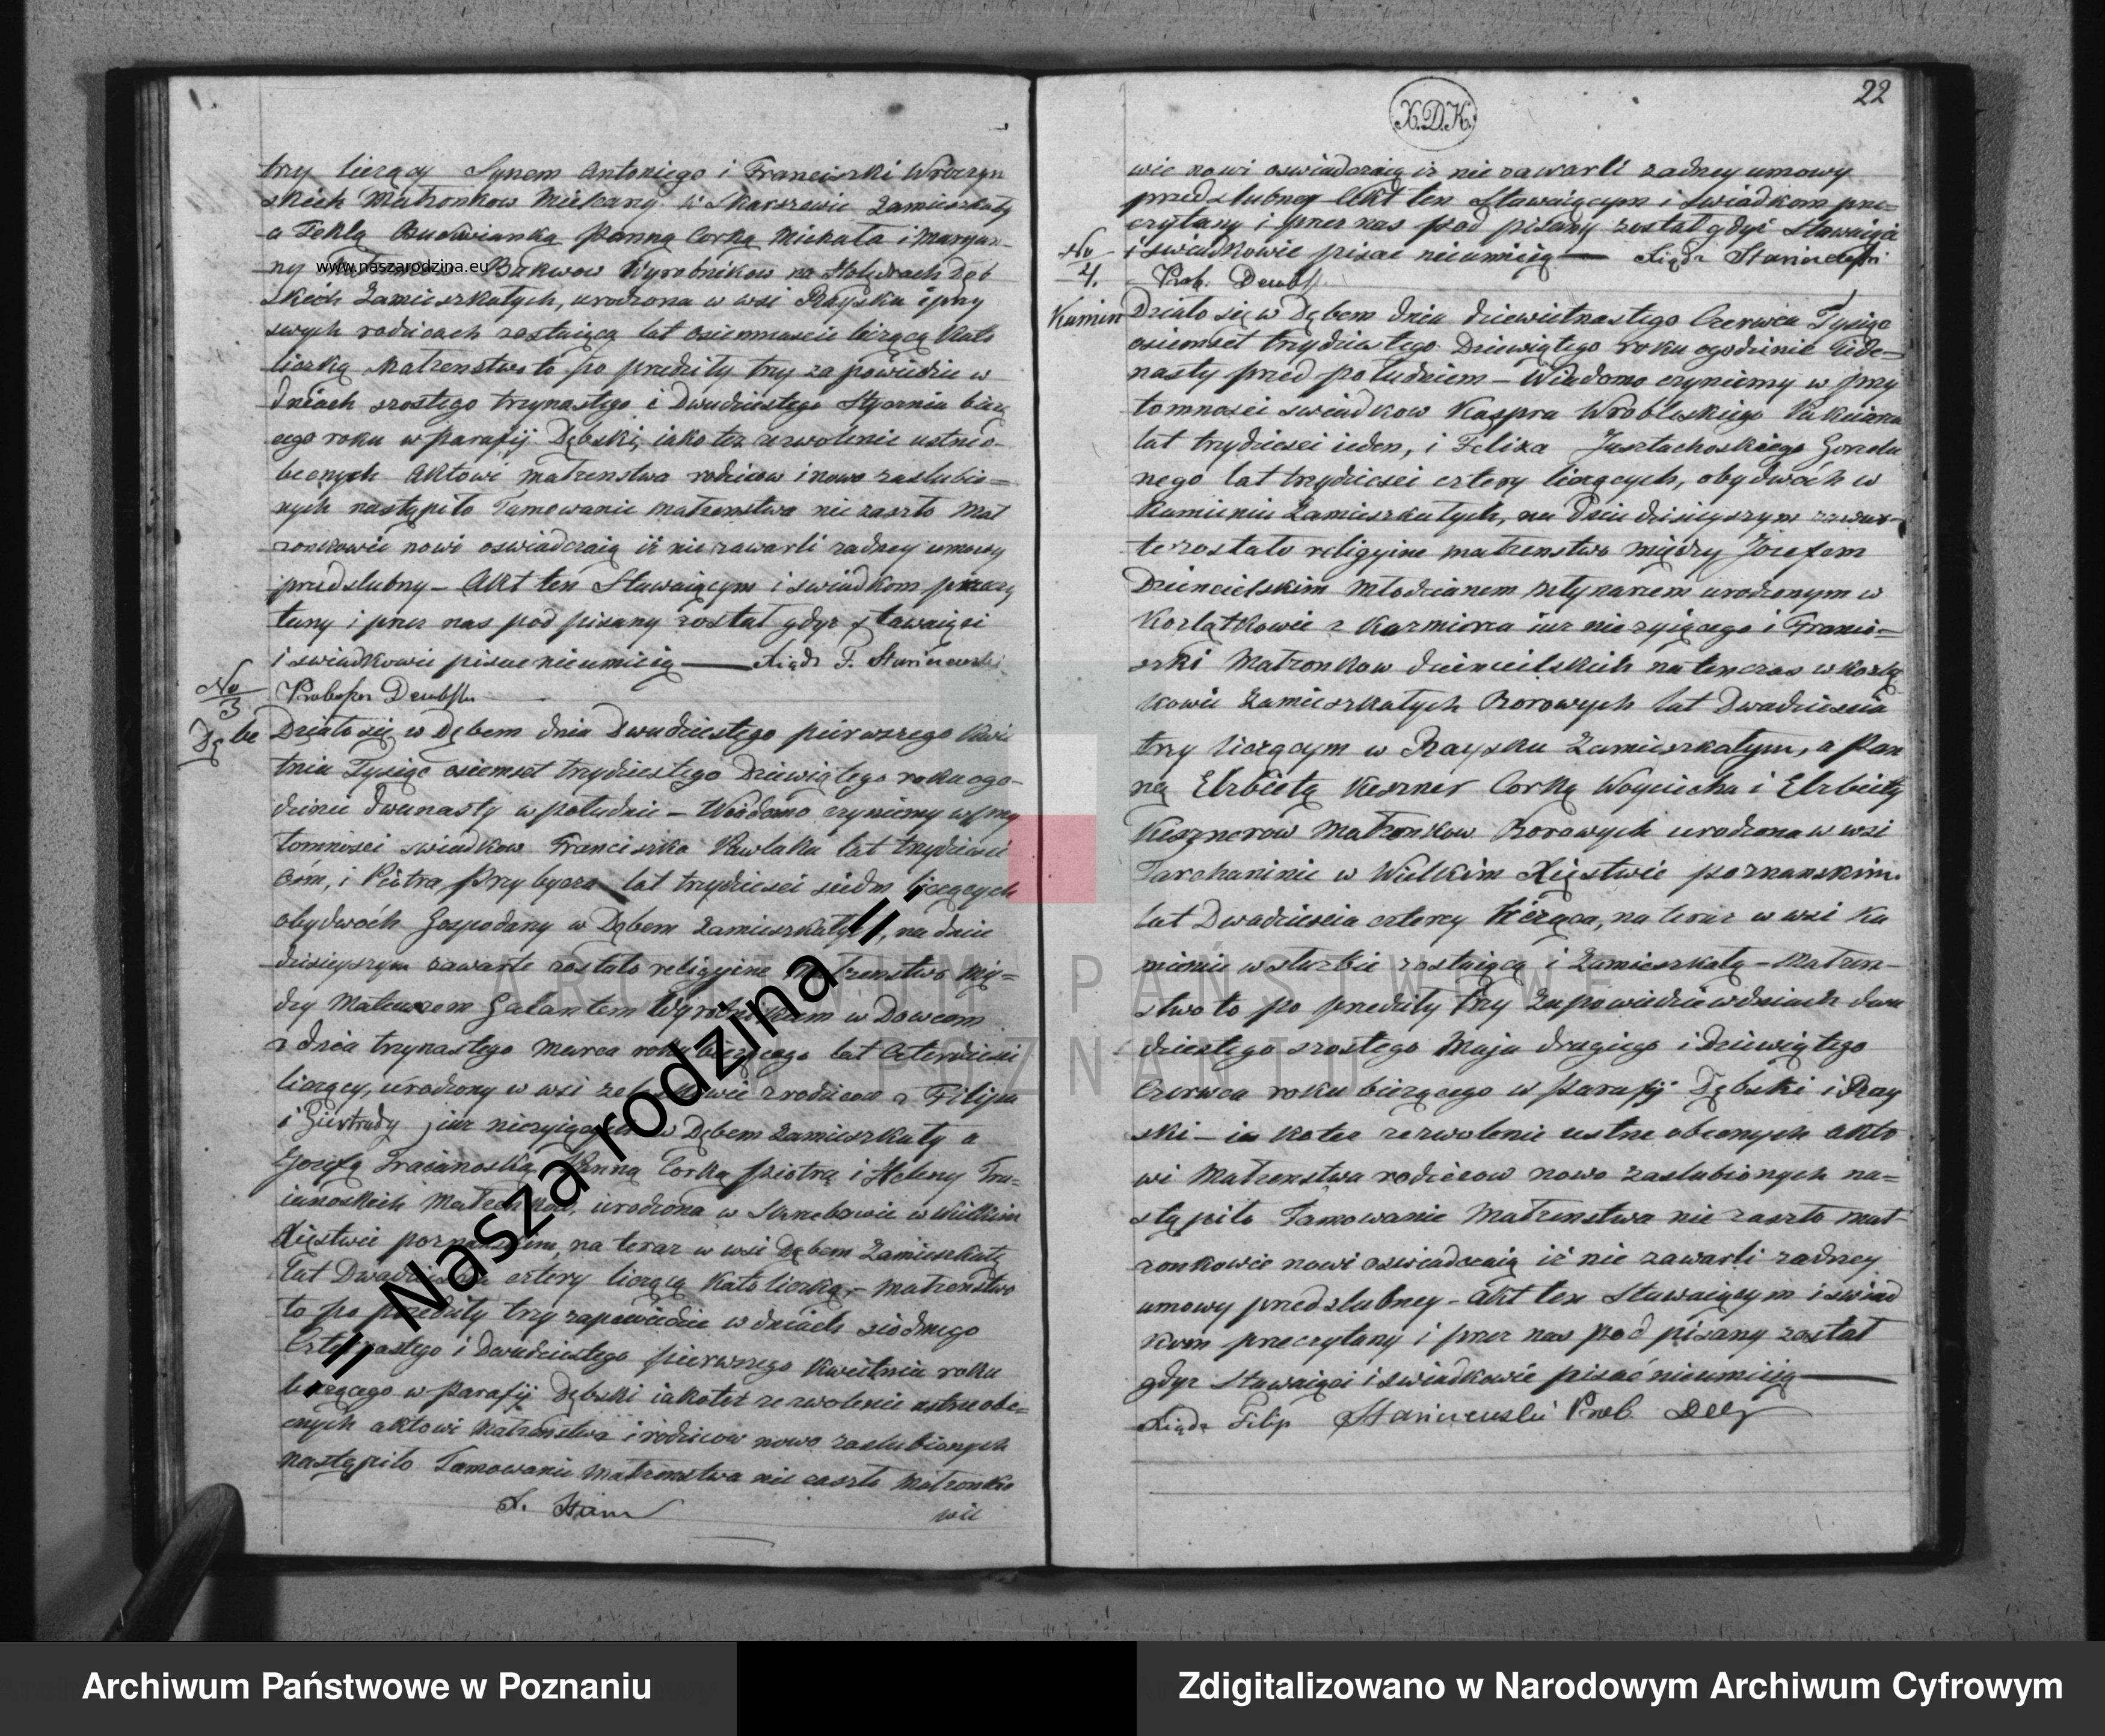 try liczący Synem Antoniego i Franciszki Wroczyn
skich Małzonkow Mieszaną w Skarszewie Zamieszkały
a Teklą Bukwianką Panną Corką Michała i Maryan-
ny Bukwow Wyrobnikow na Holędrach Dęb
skich Zamieszkałych, urodzona w wsi Raysku i przy
swych rodzicach zostaiącą lat osiemnascie liczącą Kato
liczką Małzenstwo to po przedziły trzy zapowiedzie w
dniach szostego trzynastego i Dwudziestego Stycznia bież
cego roku w Parafij Dębski, iako tez zezwolenie ustnio
becnych Aktowi małzenstwa rodzicow i nowo zaslubio=
nych nastąpiło Tamowanie małzenstwa nie zaszło Mał
zonkowie nowi oswiadczaią iż nie zawarli zadney umowy
przedslubny – Akt ten Stawaiącym i swiadkom przeczy
tany i przez nas pod pisany został gdyz stawaiąci
i swiadkowie pisac nieumieią — Xiądz F. Staniszewski
No 3
Proboszcz Dembski
Dębe
Działo się w Dębem dnia Dwudziestego pierwszego Kwie
tnia Tysiąc osiemset trzydziestego Dziewiątego roku ogo-
dzinie dwunasty w południe – Wiadomo czyniemy w przy
tomnosci swiadkow Franciszka Pawlaka lat trzydziesci
osm, i Piotra Przybycza lat trzydziesci siedm liczących
obydwóch Gospodarzy w Dębem Zamieszkałych, na dniu
dzisieyszym zawarte zostało religyine Małzenstwo mię=
dzy Mateuszem Galantem Wyrobnikiem w Dowcem
z dnia trzynastego Marca roku bieżącego lat Czterdziesci
liczący, urodzony w wsi z rodzicow z Filipa
i Giertrudy juz nieżyiących w Dębem Zamieszkały a
Jozefą Traianoską Panną Corką Piotra i Heleny Tra-
ianoskich Małzonkow, urodzona w w Wielkim
Xięstwie poznanskim, na teraz w wsi Dębem Zamieszkałą
lat Dwadziescia cztery liczącą Katoliczką – Małzenstwo
to po przedziły trzy zapowiedzie w dniach siodmego
Czternastego i Dwudziestego pierwszego Kwietnia roku
bieżącego w Parafij Dębski iakotez ze zwolenie ustne obe=
cnych aktowi Małzenstwa i rodzicow nowo zaslubionych
nastąpiło Tamowanie Małzenstwa nie zaszło Małzonko
X. Stan
wie
www.naszarodzina.eu
.:: Nasza rodzina ::.
22
X.D.K.
wie nowi oswiadczaią iz nie zawarli zadney umowy
przedslubney Akt ten Stawaiącym i swiadkom prze=
czytany i przez nas pod pisany został gdyż Stawaiąci
i swiadkowie pisac nieumieią — Xiądz Staniszewski
No 4.
Prob. Dembski
Kamin
Działo się w Dębem dnia dziewietnastego Czerwca Tysiąc
osiemset trzydziestego Dziewiątego roku ogodzinie Iede=
nasty przed południem – Wiadomo czyniemy w przy
tomnosci swiadkow Kaspra Wroblskiego Pakciarza
lat trzydziesci ieden, i Felixa Jusztachoskiego Gorzelu
nego lat trzydziesci cztery liczących, obydwóch w
Kamieniu Zamieszkałych, na dniu dzisieyszym zawar-
te zostało religyine małzenstwo między Jozefem
Dziencielskim Młodzianem Młynarzem urodzonym w
Kozlątkowie z Kazmierza iuz nie zyiącego i Francis=
szki Małzonkow dziencielskich natenczas w Kozlą
kowie Zamieszkałych Borowych lat Dwadziescia
trzy liczącym w Raysku Zamieszkałym, a Pan
ną Elzbietą Keszner Corką Woyciecha i Elzbiety
Kesznerow Małzonkow Borowych urodzona w wsi
Tarchaninie w Wielkim Xięstwie poznanskim.
lat Dwadziescia cztery liczącą, na teraz w wsi Ka
mieniu w słuzbie zostaiącą i Zamieszkałą – Małzen-
stwo to po przedziły trzy Zapowiedzie w dniach dwu
dziestego szostego Maja drugiego i Dziewiątego
Czerwca roku bieżącego w Parafij Dębski i Ray
ski – ia kotez zezwolenie ustne obecnych akto
wi Małzenstwa rodzicow nowo zaslubionych na=
stąpiło Tamowanie Małzenstwa nie zaszło mał
zonkowie nowi oswiadczaią iż nie zawarli zadney
umowy przedslubney – Akt ten Stawaiącym i swiad
kom przeczytany i przez nas pod pisany został
gdyz stawaiąci i swiadkowie pisać nieumieią —
Xiądz Filip Staniszewski Prob. Dęb
ARCHIWUM PAŃSTWOWE
W POZNANIU
Archiwum Państwowe w Poznaniu
Zdigitalizowano w Narodowym Archiwum Cyfrowym